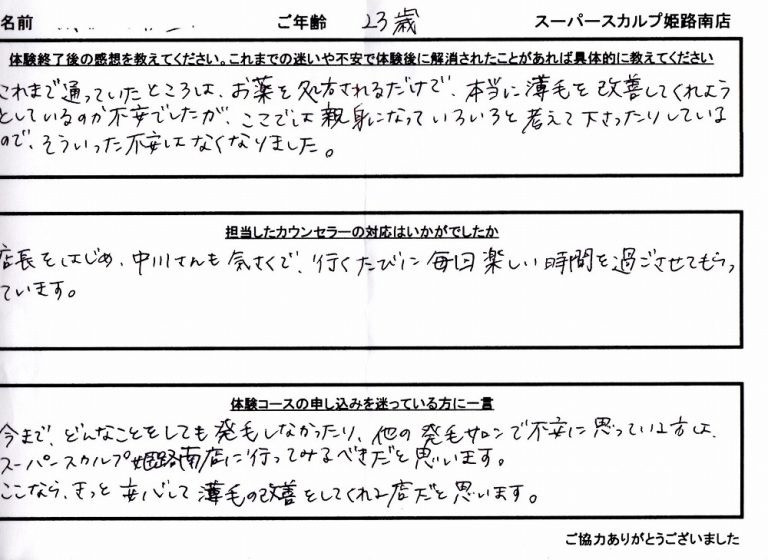 名前 ご年齢 23歳 スーパースカルプ姫路南店
体験終了後の感想を教えてください。これまでの迷いや不安で体験後に解消されたことがあれば具体的に教えてください
これまで通っていたところは、お薬を処方されるだけで、本当に薄毛を改善してくれよう
としているのか不安でしたが、ここでは親身になっていろいろと考えて下さったりしている
ので、そういった不安はなくなりました。
担当したカウンセラーの対応はいかがでしたか
店長をはじめ、中川さんも気さくで、行くたびに毎回楽しい時間を過ごさせてもらっ
ています。
体験コースの申し込みを迷っている方に一言
今まで、どんなことをしても発毛しなかったり、他の発毛サロンで不安に思っている方は、
スーパースカルプ姫路南店に行ってみるべきだと思います。
ここなら、きっと安心して薄毛の改善をしてくれる店だと思います。
ご協力ありがとうございました